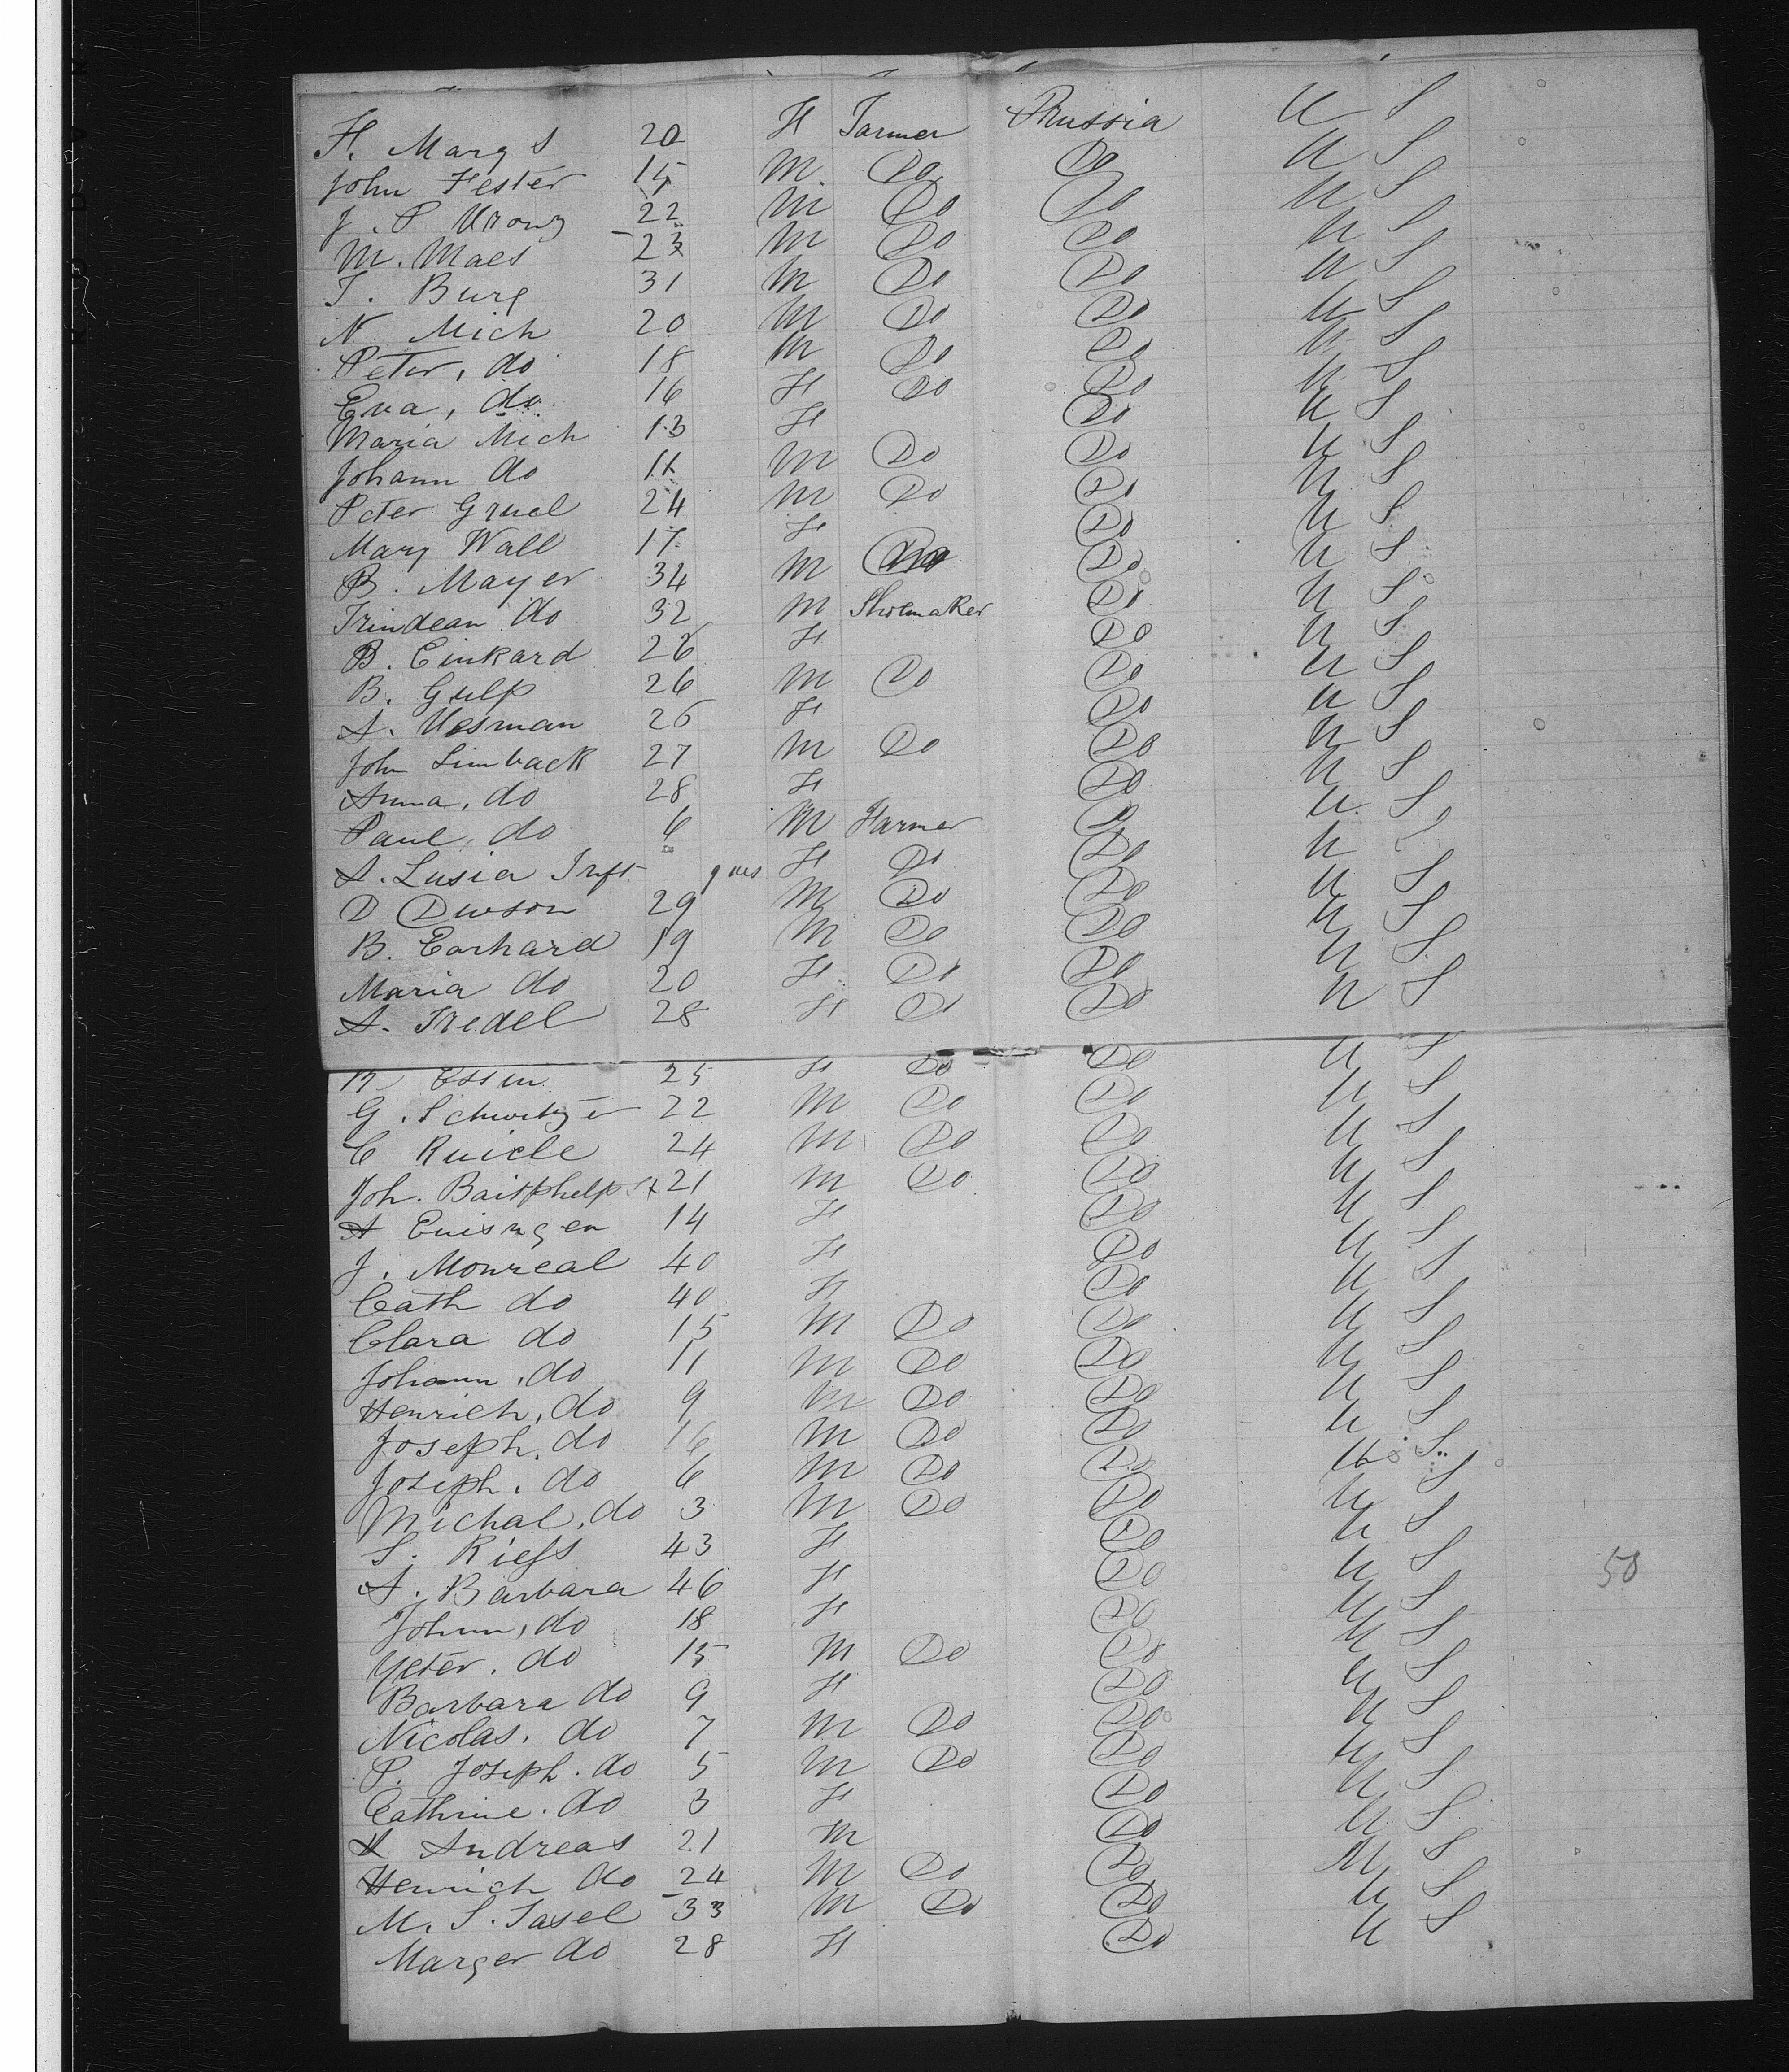 H. Marg S 20 H Farmer Prussia U S
John Hester 15 M Do Do U S
J. P Urony 22 M Do Do U S
M. Maes 23 M Do Do U S
T. Burg 31 M Do Do U S
N Mich 20 M Do Do U S
Peter, do 18 M Do Do U S
Eva, do 16 H Do Do U S
Maria Mich 13 H Do U S
Johann do 11 M Do Do U S
Peter Gruel 24 M Do Do U S
Mary Wall 17 H Do U S
B. Mayer 34 M Do U S
Trindean do 32 M Shoemaker Do U S
B. Einkard 26 H Do U S
B. Gulp 26 M Do Do U S
A. Uesman 26 H Do U S
John Limback 27 M Do Do U S
Anna, do 28 H Do U S
Paul, do 6 M Farmer Do U S
A. Lusia Inft 9 H Do Do U S
D Dewson 29 M Do Do U S
B. Earhard 19 M Do Do U S
Maria do 20 H Do Do U S
A. Tredel 28 H Do Do U S
Essin 25 H Do Do U S
G. Schwitzer 22 M Do Do U S
C Ruicle 24 M Do Do U S
Joh. 21 M Do Do U S
A 14 H Do U S
J. Monreal 40 H Do U S
Cath do 40 H Do U S
Clara do 15 M Do Do U S
Johann, do 11 M Do Do U S
Henrich, do 9 M Do Do U S
Joseph, do 16 M Do Do U S
Joseph, do 6 M Do Do U S
Michal, do 3 M Do Do U S
S. Riefs 43 H Do U S
A. Barbara 46 H Do U S 50
Johnn, do 18 H Do U S
Peter, do 15 M Do Do U S
Barbara do 9 H Do U S
Nicolas, do 7 M Do Do U S
P. Joseph. do 5 M Do Do U S
Cathrine. do 3 H Do U S
Andreas 21 M Do U S
Henrich do 24 M Do Do U S
M. S. Tasel 33 M Do Do U S
Marger do 28 H Do U S